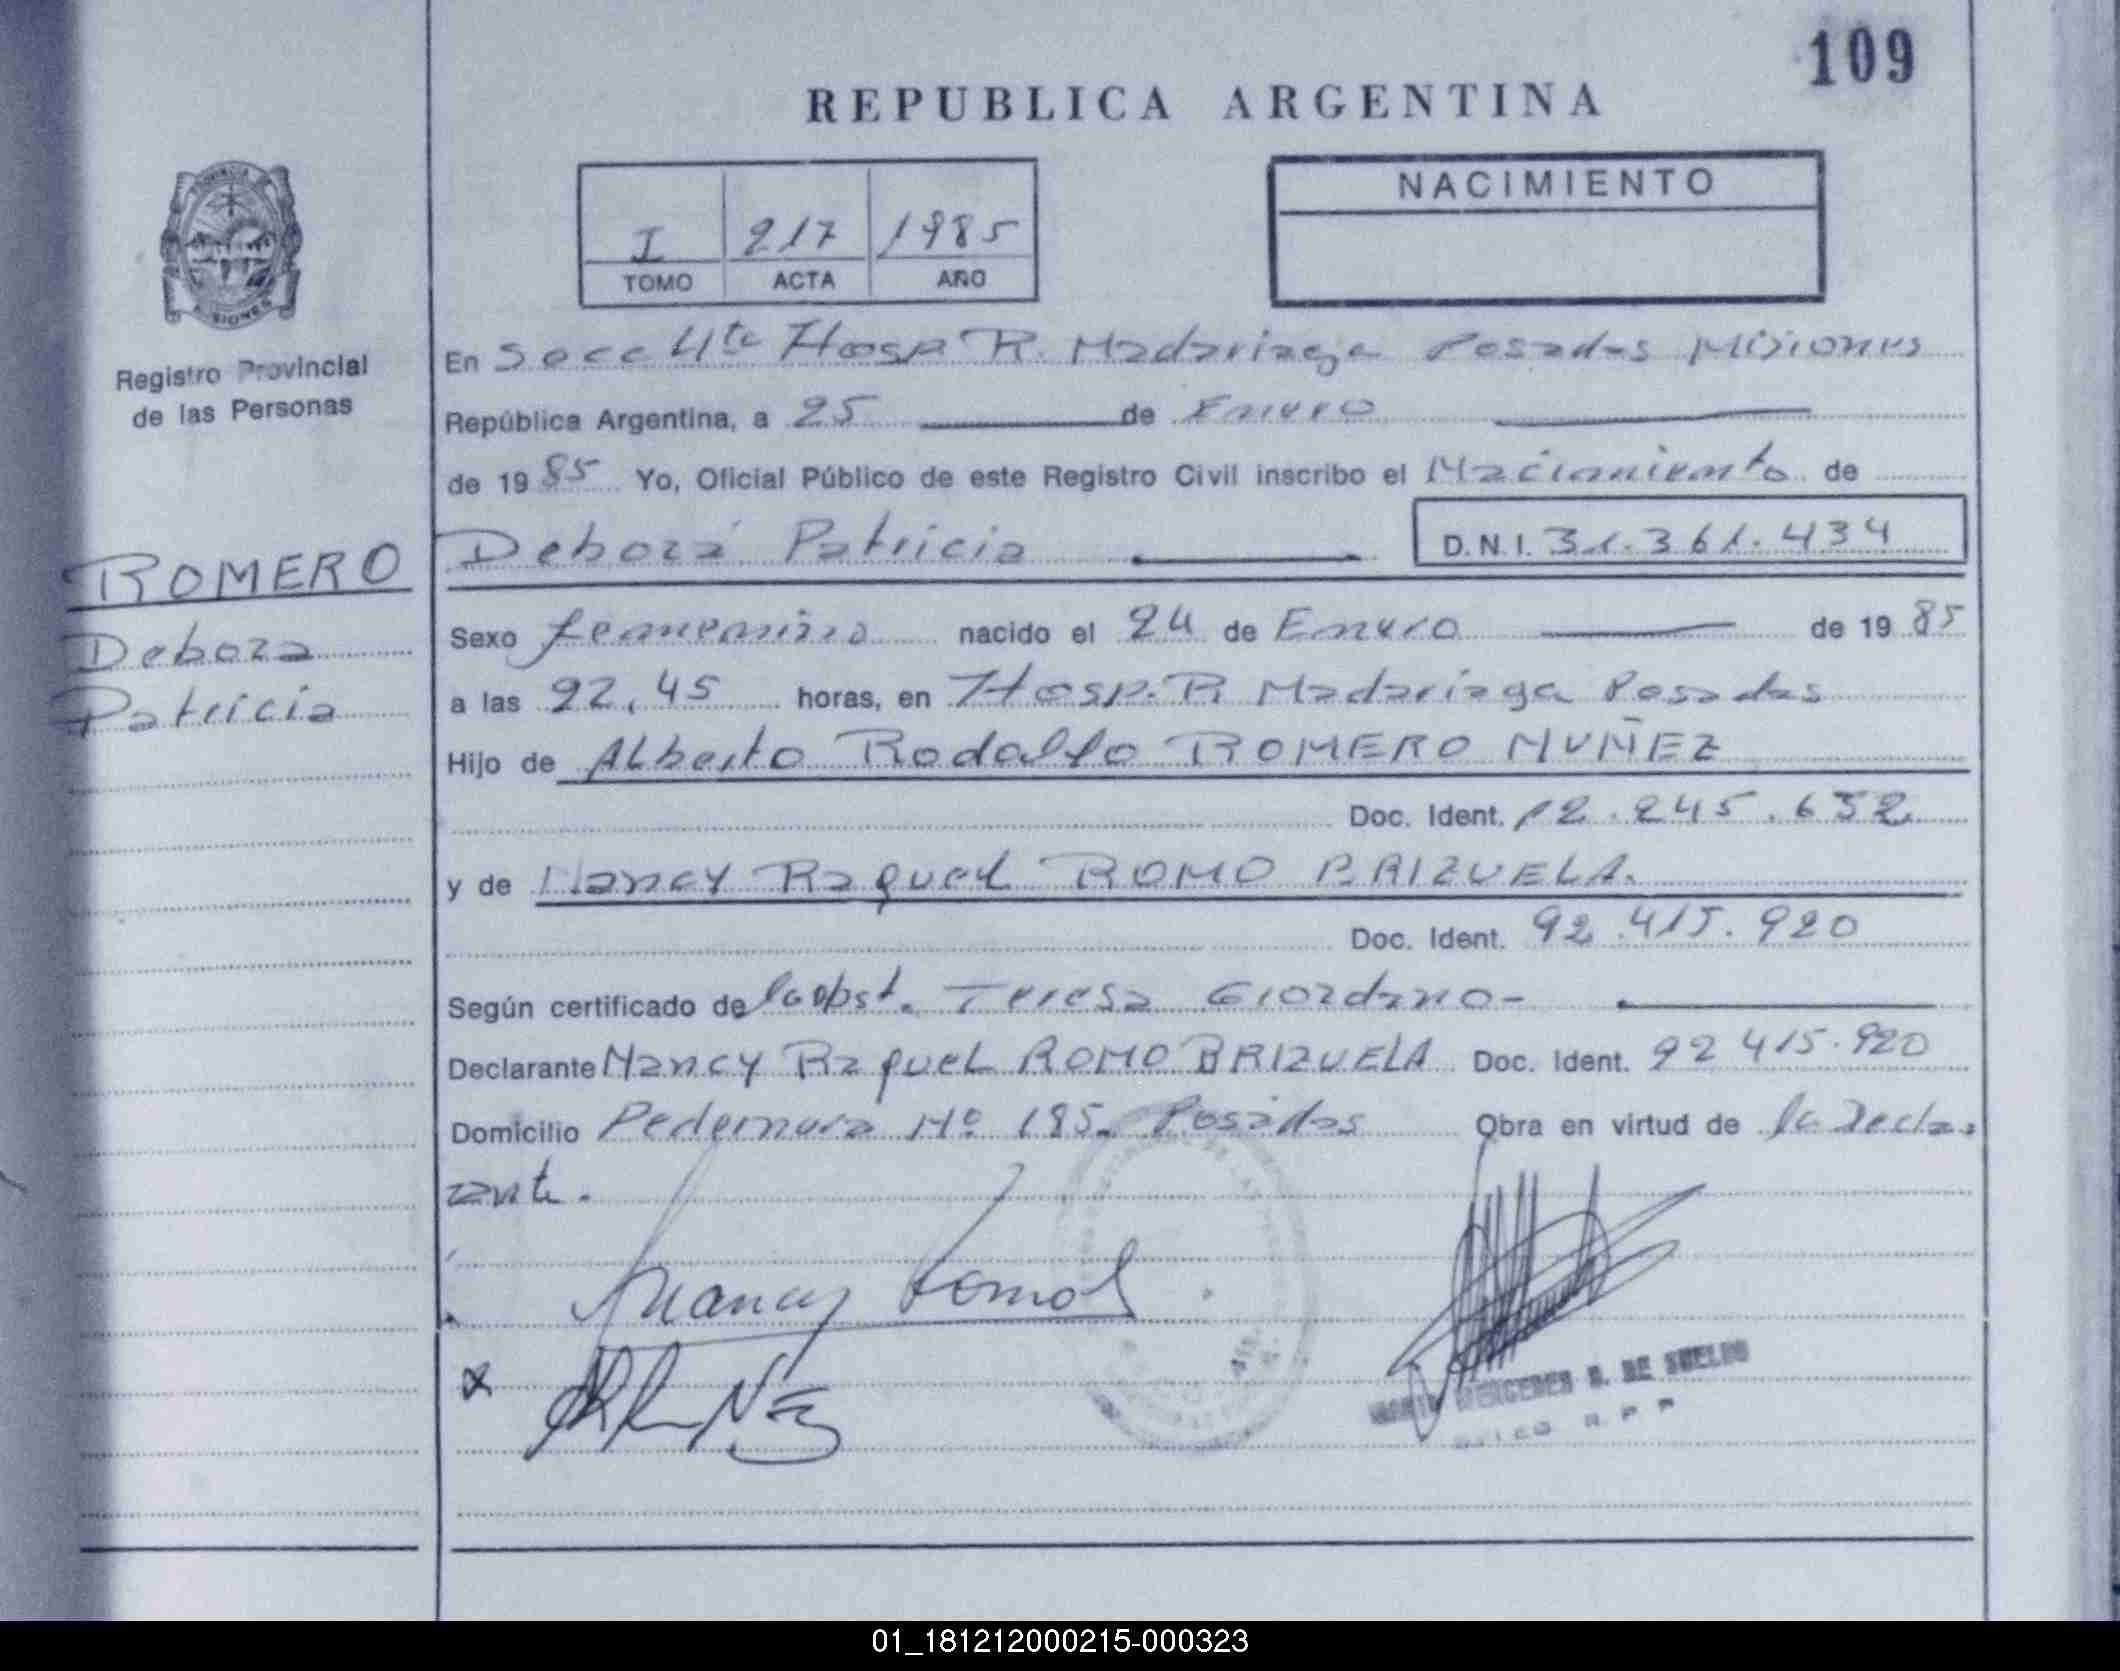 109
REPUBLICA ARGENTINA
I 217 1985
TOMO ACTA AÑO
NACIMIENTO
PROVINCIA
MISIONES
Registro Provincial
de las Personas
En Secc 4ta Hosp R. Madariaga Posadas Misiones
República Argentina, a 25 de Enero
de 19 85 Yo, Oficial Público de este Registro Civil inscribo el Nacimiento de
Debora Patricia D.N.I. 31.361.434
ROMERO
Debora
Patricia
Sexo femenino nacido el 24 de Enero de 19 85
a las 22,45 horas, en Hosp. R Madariaga Posadas
Hijo de Alberto Rodolfo ROMERO NUÑEZ
Doc. Ident. 12.245.652
y de Nancy Raquel ROMO BRIZUELA.
Doc. Ident. 92.415.920
Según certificado de la obst. Teresa Giordano-
Declarante Nancy Raquel ROMO BRIZUELA Doc. Ident. 92 415.920
Domicilio Pedernera Nº 185. Posadas Obra en virtud de la Decla
rante.
Nancy Romo
MERCEDES DE SUELDO
01_181212000215-000323